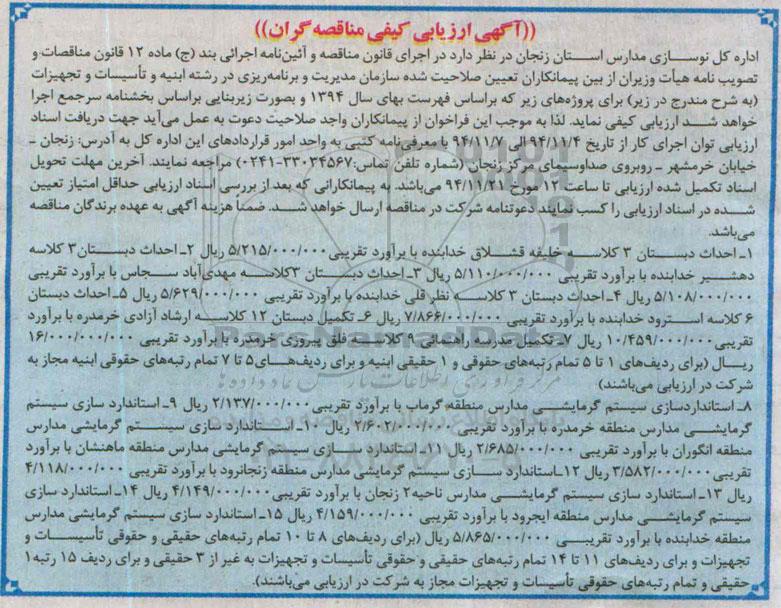 ((آگهی ارزیابی کیفی مناقصه گران))
اداره کل نوسازی مدارس استان زنجان در نظر دارد در اجرای قانون مناقصه و آئین‌نامه اجرائی بند (ج) ماده ۱۲ قانون مناقصات و
تصویب نامه هیأت وزیران از بین پیمانکاران تعیین صلاحیت شده سازمان مدیریت و برنامه‌ریزی در رشته ابنیه و تأسیسات و تجهیزات
(به شرح مندرج در زیر) برای پروژه‌های زیر که براساس فهرست بهای سال ۱۳۹۴ و بصورت زیربنایی براساس بخشنامه سرجمع اجرا
خواهد شد ارزیابی کیفی نماید. لذا به موجب این فراخوان از پیمانکاران واجد صلاحیت دعوت به عمل می‌آید جهت دریافت اسناد
ارزیابی توان اجرای کار از تاریخ ۹۴/۱۱/۴ الی ۹۴/۱۱/۷ با معرفی‌نامه کتبی به واحد امور قراردادهای این اداره کل به آدرس: زنجان ـ
خیابان خرمشهر ـ روبروی صداوسیمای مرکز زنجان (شماره تلفن تماس: ۳۳۰۳۴۵۶۷-۰۲۴۱) مراجعه نمایند. آخرین مهلت تحویل
اسناد تکمیل شده ارزیابی تا ساعت ۱۲ مورخ ۹۴/۱۱/۲۱ می‌باشد. به پیمانکارانی که بعد از بررسی اسناد ارزیابی حداقل امتیاز تعیین
شده در اسناد ارزیابی را کسب نمایند دعوتنامه شرکت در مناقصه ارسال خواهد شد. ضمناً هزینه آگهی به عهده برندگان مناقصه
می‌باشد.
۱ـ احداث دبستان ۳ کلاسه خلیفه قشلاق خدابنده با برآورد تقریبی ۵/۲۱۵/۰۰۰/۰۰۰ ریال ۲ـ احداث دبستان ۳ کلاسه
دهشیر خدابنده با برآورد تقریبی ۵/۱۱۰/۰۰۰/۰۰۰ ریال ۳ـ احداث دبستان ۳ کلاسه مهدی‌آباد سجاس با برآورد تقریبی
۵/۱۰۸/۰۰۰/۰۰۰ ریال ۴ـ احداث دبستان ۳ کلاسه نظر قلی خدابنده با برآورد تقریبی ۵/۶۲۹/۰۰۰/۰۰۰ ریال ۵ـ احداث دبستان
۶ کلاسه استرود خدابنده با برآورد تقریبی ۷/۸۶۶/۰۰۰/۰۰۰ ریال ۶ـ تکمیل دبستان ۱۲ کلاسه ارشاد آزادی خرمدره با برآورد
تقریبی ۱۰/۴۵۹/۰۰۰/۰۰۰ ریال ۷ـ تکمیل مدرسه راهنمائی ۹ کلاسه فلق پیروزی خرمدره با برآورد تقریبی ۱۶/۰۰۰/۰۰۰/۰۰۰
ریال (برای ردیف‌های ۱ تا ۵ تمام رتبه‌های حقوقی و ۱ حقیقی ابنیه و برای ردیف‌های ۵ تا ۷ تمام رتبه‌های حقوقی ابنیه مجاز به
شرکت در ارزیابی می‌باشند)
۸ـ استانداردسازی سیستم گرمایشی مدارس منطقه گرماب با برآورد تقریبی ۲/۱۳۷/۰۰۰/۰۰۰ ریال ۹ـ استاندارد سازی سیستم
گرمایشی مدارس منطقه خرمدره با برآورد تقریبی ۲/۶۰۲/۰۰۰/۰۰۰ ریال ۱۰ـ استاندارد سازی سیستم گرمایشی مدارس
منطقه انگوران با برآورد تقریبی ۲/۶۸۵/۰۰۰/۰۰۰ ریال ۱۱ـ استاندارد سازی سیستم گرمایشی مدارس منطقه ماهنشان با برآورد
تقریبی ۳/۵۸۲/۰۰۰/۰۰۰ ریال ۱۲ـ استاندارد سازی سیستم گرمایشی مدارس منطقه زنجانرود با برآورد تقریبی ۴/۱۱۸/۰۰۰/۰۰۰
ریال ۱۳ـ استاندارد سازی سیستم گرمایشی مدارس ناحیه۲ زنجان با برآورد تقریبی ۴/۱۴۹/۰۰۰/۰۰۰ ریال ۱۴ـ استاندارد سازی
سیستم گرمایشی مدارس منطقه ایجرود با برآورد تقریبی ۴/۱۵۹/۰۰۰/۰۰۰ ریال ۱۵ـ استاندارد سازی سیستم گرمایشی مدارس
منطقه خدابنده با برآورد تقریبی ۵/۸۶۵/۰۰۰/۰۰۰ ریال (برای ردیف‌های ۸ تا ۱۰ تمام رتبه‌های حقیقی و حقوقی تأسیسات و
تجهیزات و برای ردیف های ۱۱ تا ۱۴ تمام رتبه‌های حقیقی و حقوقی تأسیسات و تجهیزات به غیر از ۳ حقیقی و برای ردیف ۱۵ رتبه۱
حقیقی و تمام رتبه‌های حقوقی تأسیسات و تجهیزات مجاز به شرکت در ارزیابی می‌باشند).